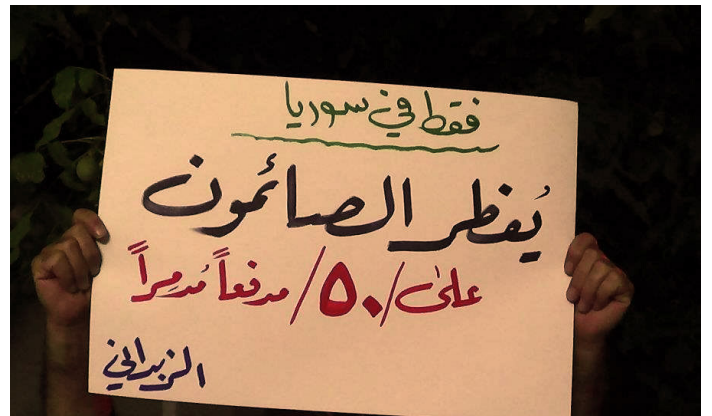 فقط في سوريا
يُفطر الصائمون
على /٥٠/ مدفعاً مُدمِراً
الزبداني